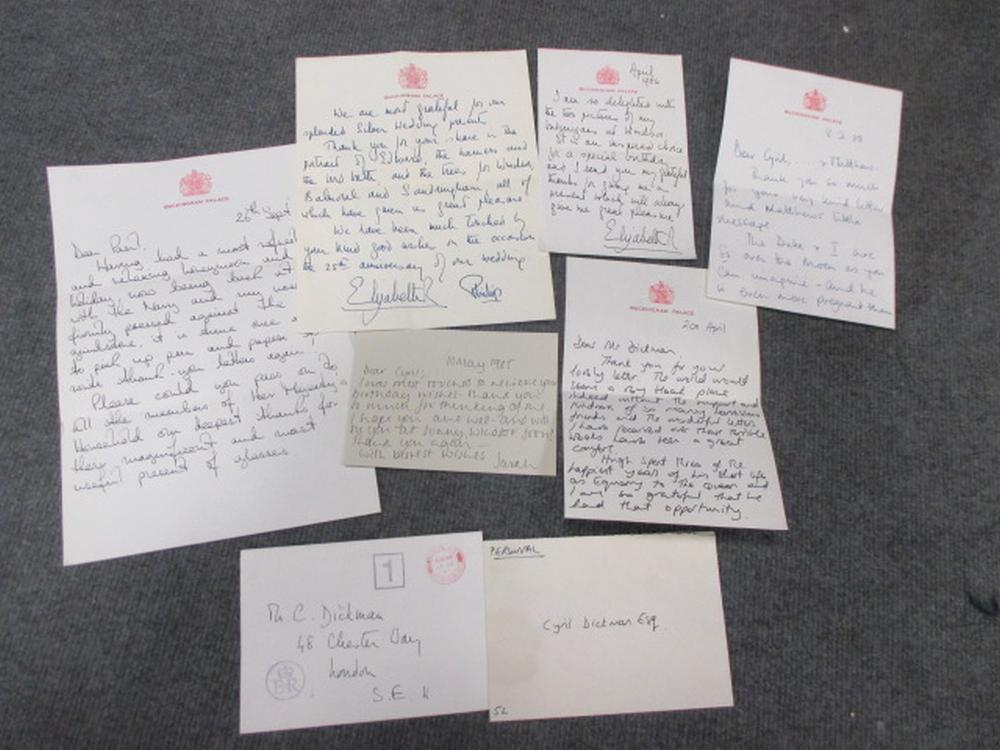 BUCKINGHAM PALACE
26th Sept
Dear
Having had a most
and relaxing honeymoon and
holiday now being back at
with the Navy and my nose
firmly pressed against the
grindstone, it is time once
to pick up pen and paper
write thank-you letters again,
Please could you pass on to
all the members of Her Majesty's
Household our deepest thanks for
their magnificent and most
useful present of glasses
BUCKINGHAM PALACE
We are most grateful for our
splendid Silver Wedding present
Thank you for your share in the
portrait of Edward, the hammers and
the two and the trees for Windsor
Balmoral and Sandringham, all of
which have given us great pleasure
We have been much touched by
your kind good wishes on the occasion
of the 25th anniversary of our wedding
Elizabeth R
Philip
BUCKINGHAM PALACE
April
I am so delighted with
the two pictures of my
at Windsor.
It is an inspired choice
for a special birthday
and I send you my grateful
thanks for giving me a
which will always
give me great pleasure
Elizabeth R
BUCKINGHAM PALACE
Dear Cyril, & Matthew
Thank you so much
for your very kind letter
and Matthew's little
message
The Duke & I are
so over the moon as you
can imagine - and he
is even more pregnant than
10 May 1985
Dear Cyril,
I was most touched to receive your
birthday wishes - thank you
so much for thinking of me
I hope you are well - and will
be you at sunny Windsor soon!
Thank you again -
With best wishes Sarah
BUCKINGHAM PALACE
20th April
Dear Mr Dickman,
Thank you for your
lovely letter. The world would
seem a very bleak place
indeed without the support and
kindness of so many
friends and the wonderful letters
I have received over these terrible
weeks have been a great
comfort
Hugh spent three of the
happiest years of his short life
as Equerry to The Queen and
I am so grateful that he
had that opportunity.
1
Mr C. Dickman
48 Chester Way
London
S.E. 11
EIIR
PERSONAL
Cyril Dickman Esq.
52